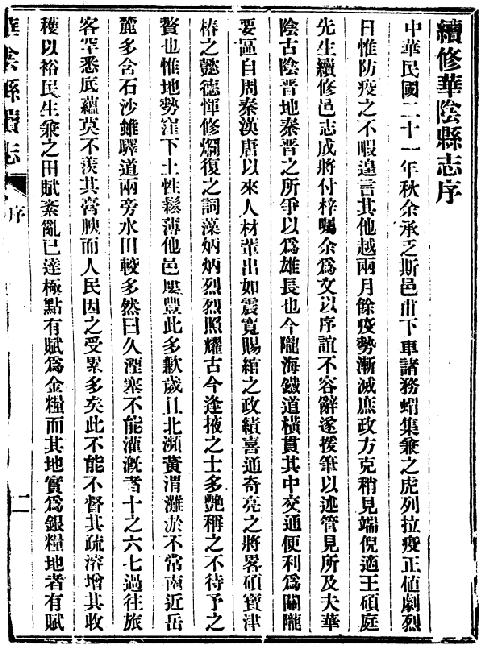 續修華陰縣志序
中華民國二十一年秋余承乏斯邑甫下車諸務蝟集兼之虎列拉疫正值劇烈
日惟防疫之不暇遑言其他越兩月餘疫勢漸滅庶政方克稍見端倪適王碩庭
先生續修邑志成將付梓囑余為文以序誼不容辭遂援筆以述管見所及夫華
陰古陰晉地秦晉之所爭以為雄長也今隴海鐵道橫貫其中交通便利為關隴
要區自周秦漢唐以來人材輩出如震寬賜綰之政績喜通奇亮之將畧碩寶津
椿之懿德惲修爛復之詞藻炳炳烈烈照耀古今逢掖之士多艷稱之不待予之
贅也惟地勢窪下土性鬆薄他邑屢豐此多歉歲且北瀕黃渭灘淤不常南近岳
麓多含石沙雖驛道兩旁水田較多然日久湮塞不能灌漑者十之六七過往旅
客罕悉底蘊莫不羨其膏腴而人民因之受累多矣此不能不督其疏濬增其收
穫以裕民生兼之田賦紊亂已達極點有賦為金糧而其地實為銀糧地者有賦
華陰縣續志
序
二